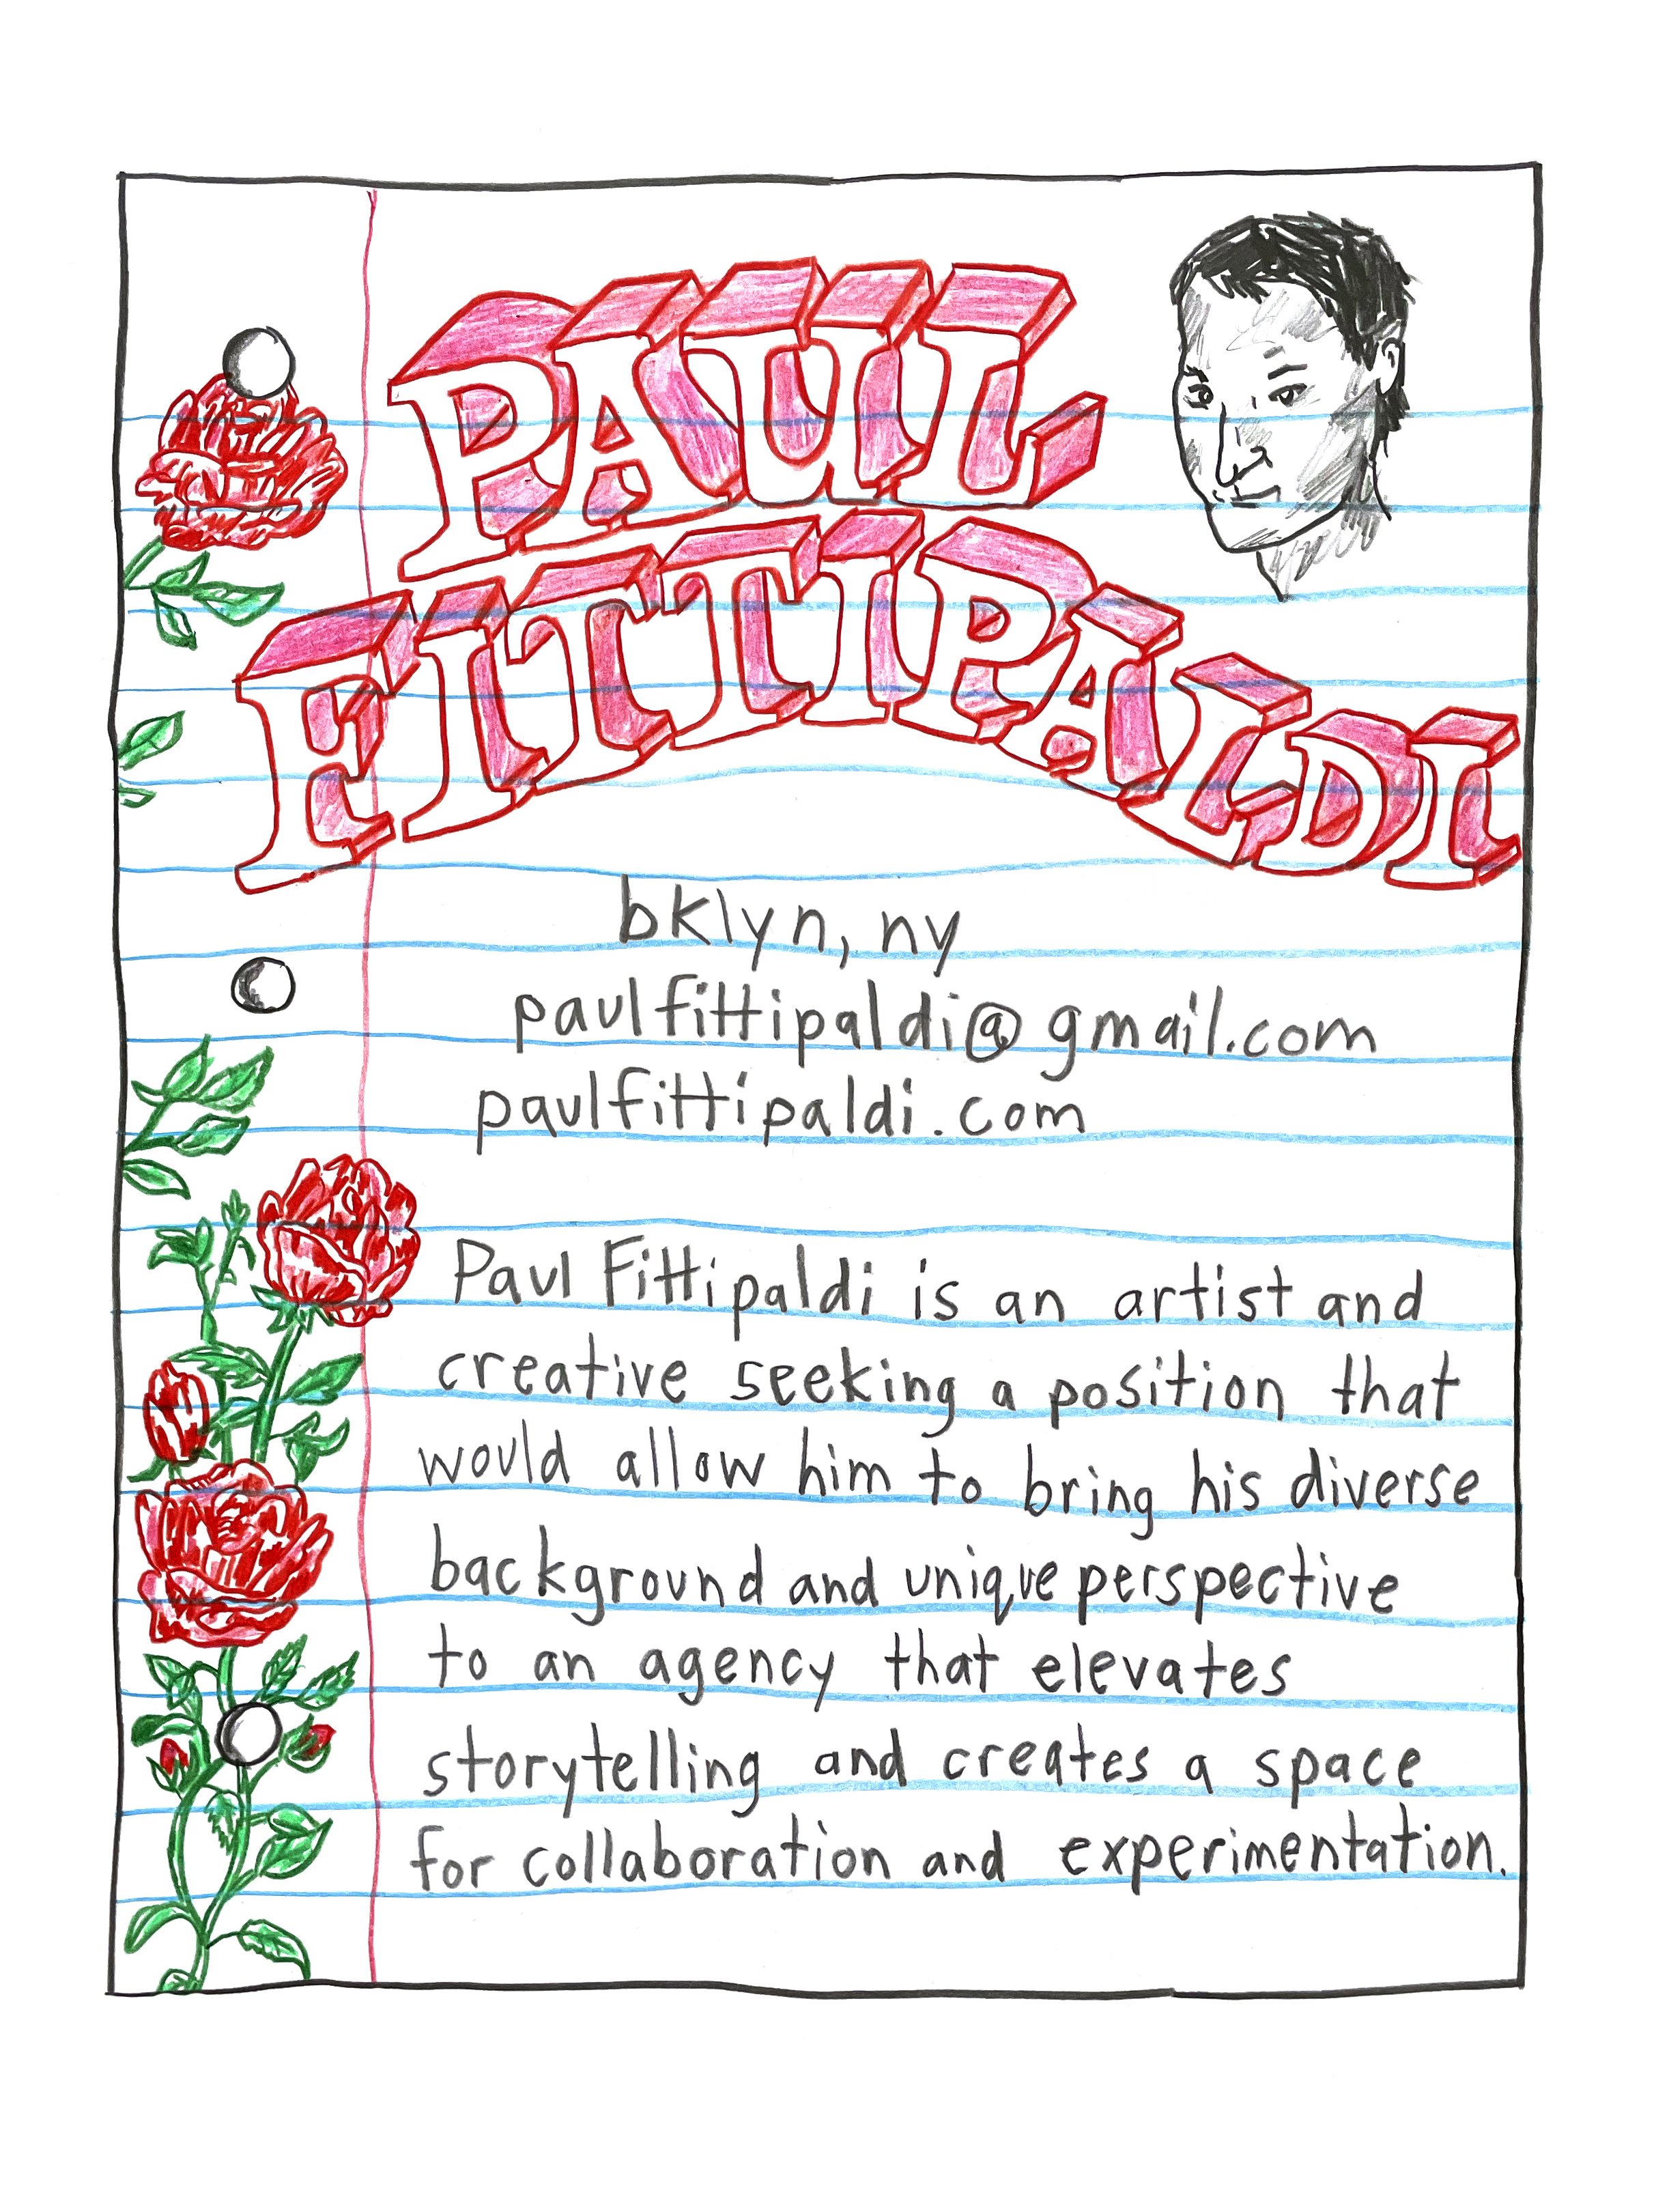 PAUL
FITTIPALDI
bklyn, ny
paulfittipaldi@gmail.com
paulfittipaldi.com
Paul Fittipaldi is an artist and
creative seeking a position that
would allow him to bring his diverse
background and unique perspective
to an agency that elevates
storytelling and creates a space
for collaboration and experimentation.